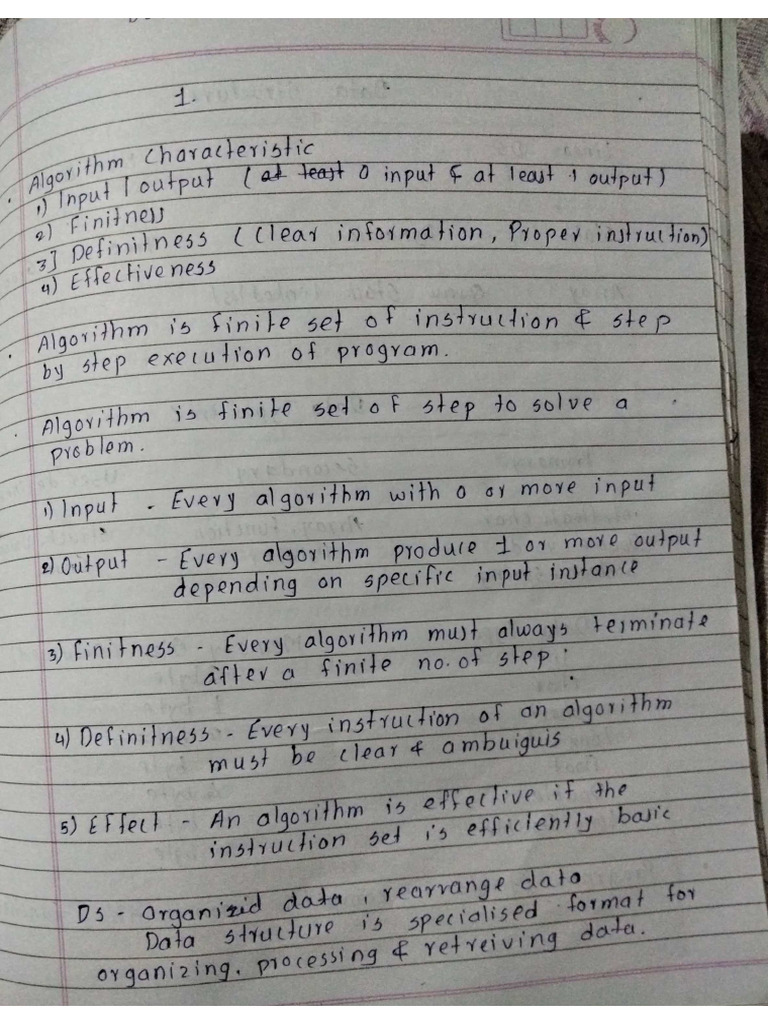 1.
Algorithm Characteristic
1) Input / output ( at least 0 input & at least 1 output )
2) Finitness
3] Definitness ( Clear information, Proper instruction)
4) Effectiveness
Algorithm is finite set of instruction & step
by step execution of program.
Algorithm is finite set of step to solve a
problem.
1) Input - Every algorithm with 0 or more input
2) Output - Every algorithm produce 1 or more output
depending on specific input instance
3) Finitness - Every algorithm must always terminate
after a finite no. of step.
4) Definitness - Every instruction of an algorithm
must be clear & ambuiguis
5) Effect - An algorithm is effective if the
instruction set is efficiently basic
DS - Organizid data, rearrange data
Data structure is specialised format for
organizing, processing & retreiving data.